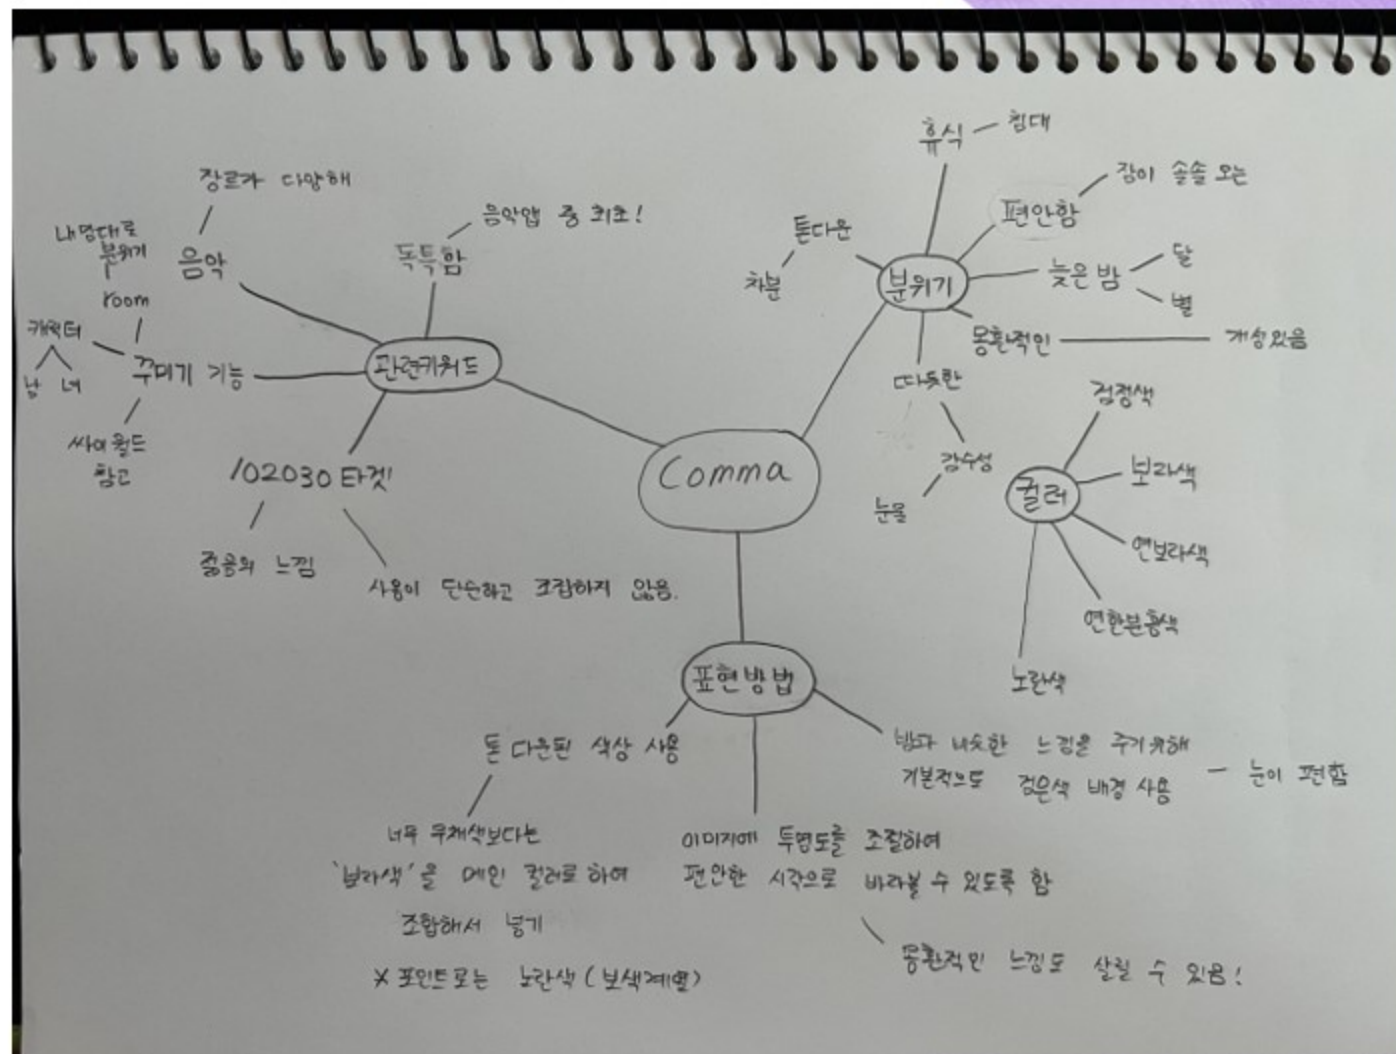 Comma
관련키워드
음악
장르가 다양해
독특함
음악앱 중 최초!
꾸미기 기능
room
내맘대로
분위기
캐릭터
남 녀
싸이월드
참고
102030 타겟
젊음의 느낌
사용이 단순하고 조잡하지 않음.
분위기
휴식
침대
편안함
잠이 솔솔 오는
늦은 밤
달
별
몽환적인
개성있음
따듯한
감수성
눈물
톤다운
차분
컬러
검정색
보라색
연보라색
연한분홍색
노란색
표현방법
톤 다운된 색상 사용
너무 무채색보다는
'보라색'을 메인 컬러로 하여
조합해서 넣기
* 포인트로는 노란색 (보색계열)
이미지에 투명도를 조절하여
편안한 시각으로 바라볼 수 있도록 함
몽환적인 느낌도 살릴 수 있음!
밤과 비슷한 느낌을 주기위해
기본적으로 검은색 배경 사용
눈이 편함